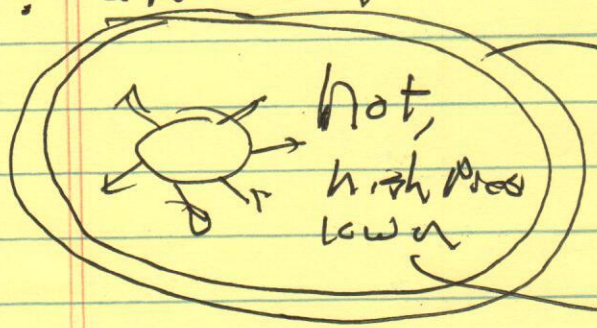 hot,
high pres
low n